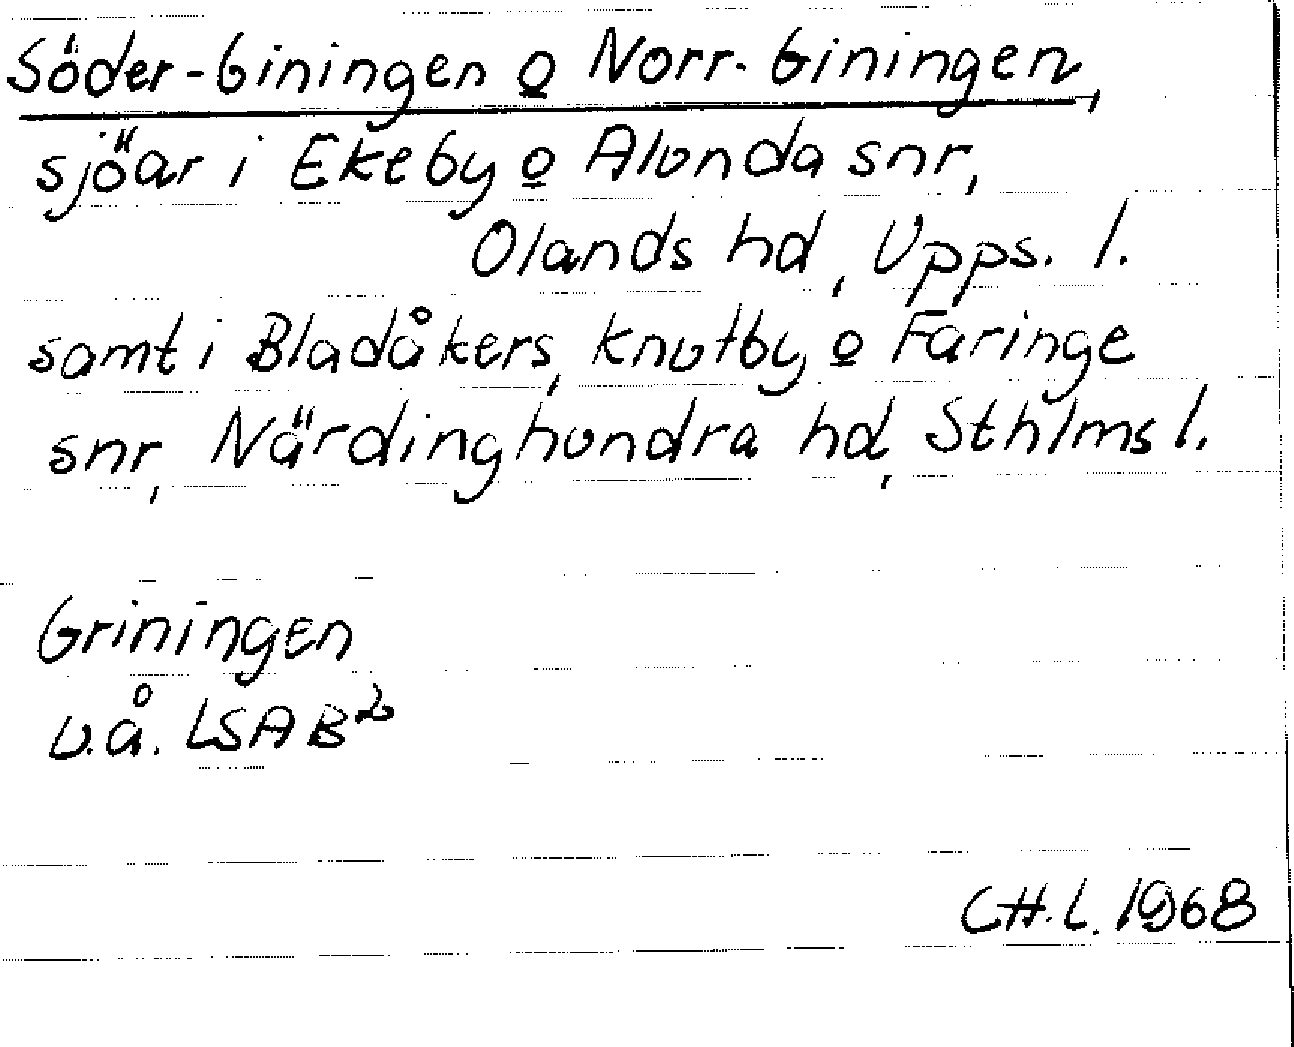 Söder-Giningen o Norr-Giningen,
sjöar i Ekeby o Alunda snr,
Olands hd, Upps. l.
samt i Bladåkers, Knutby o Faringe
snr, Närdinghundra hd, Sthlms l.
Griningen
u.å. LSA B2
CH.L. 1968